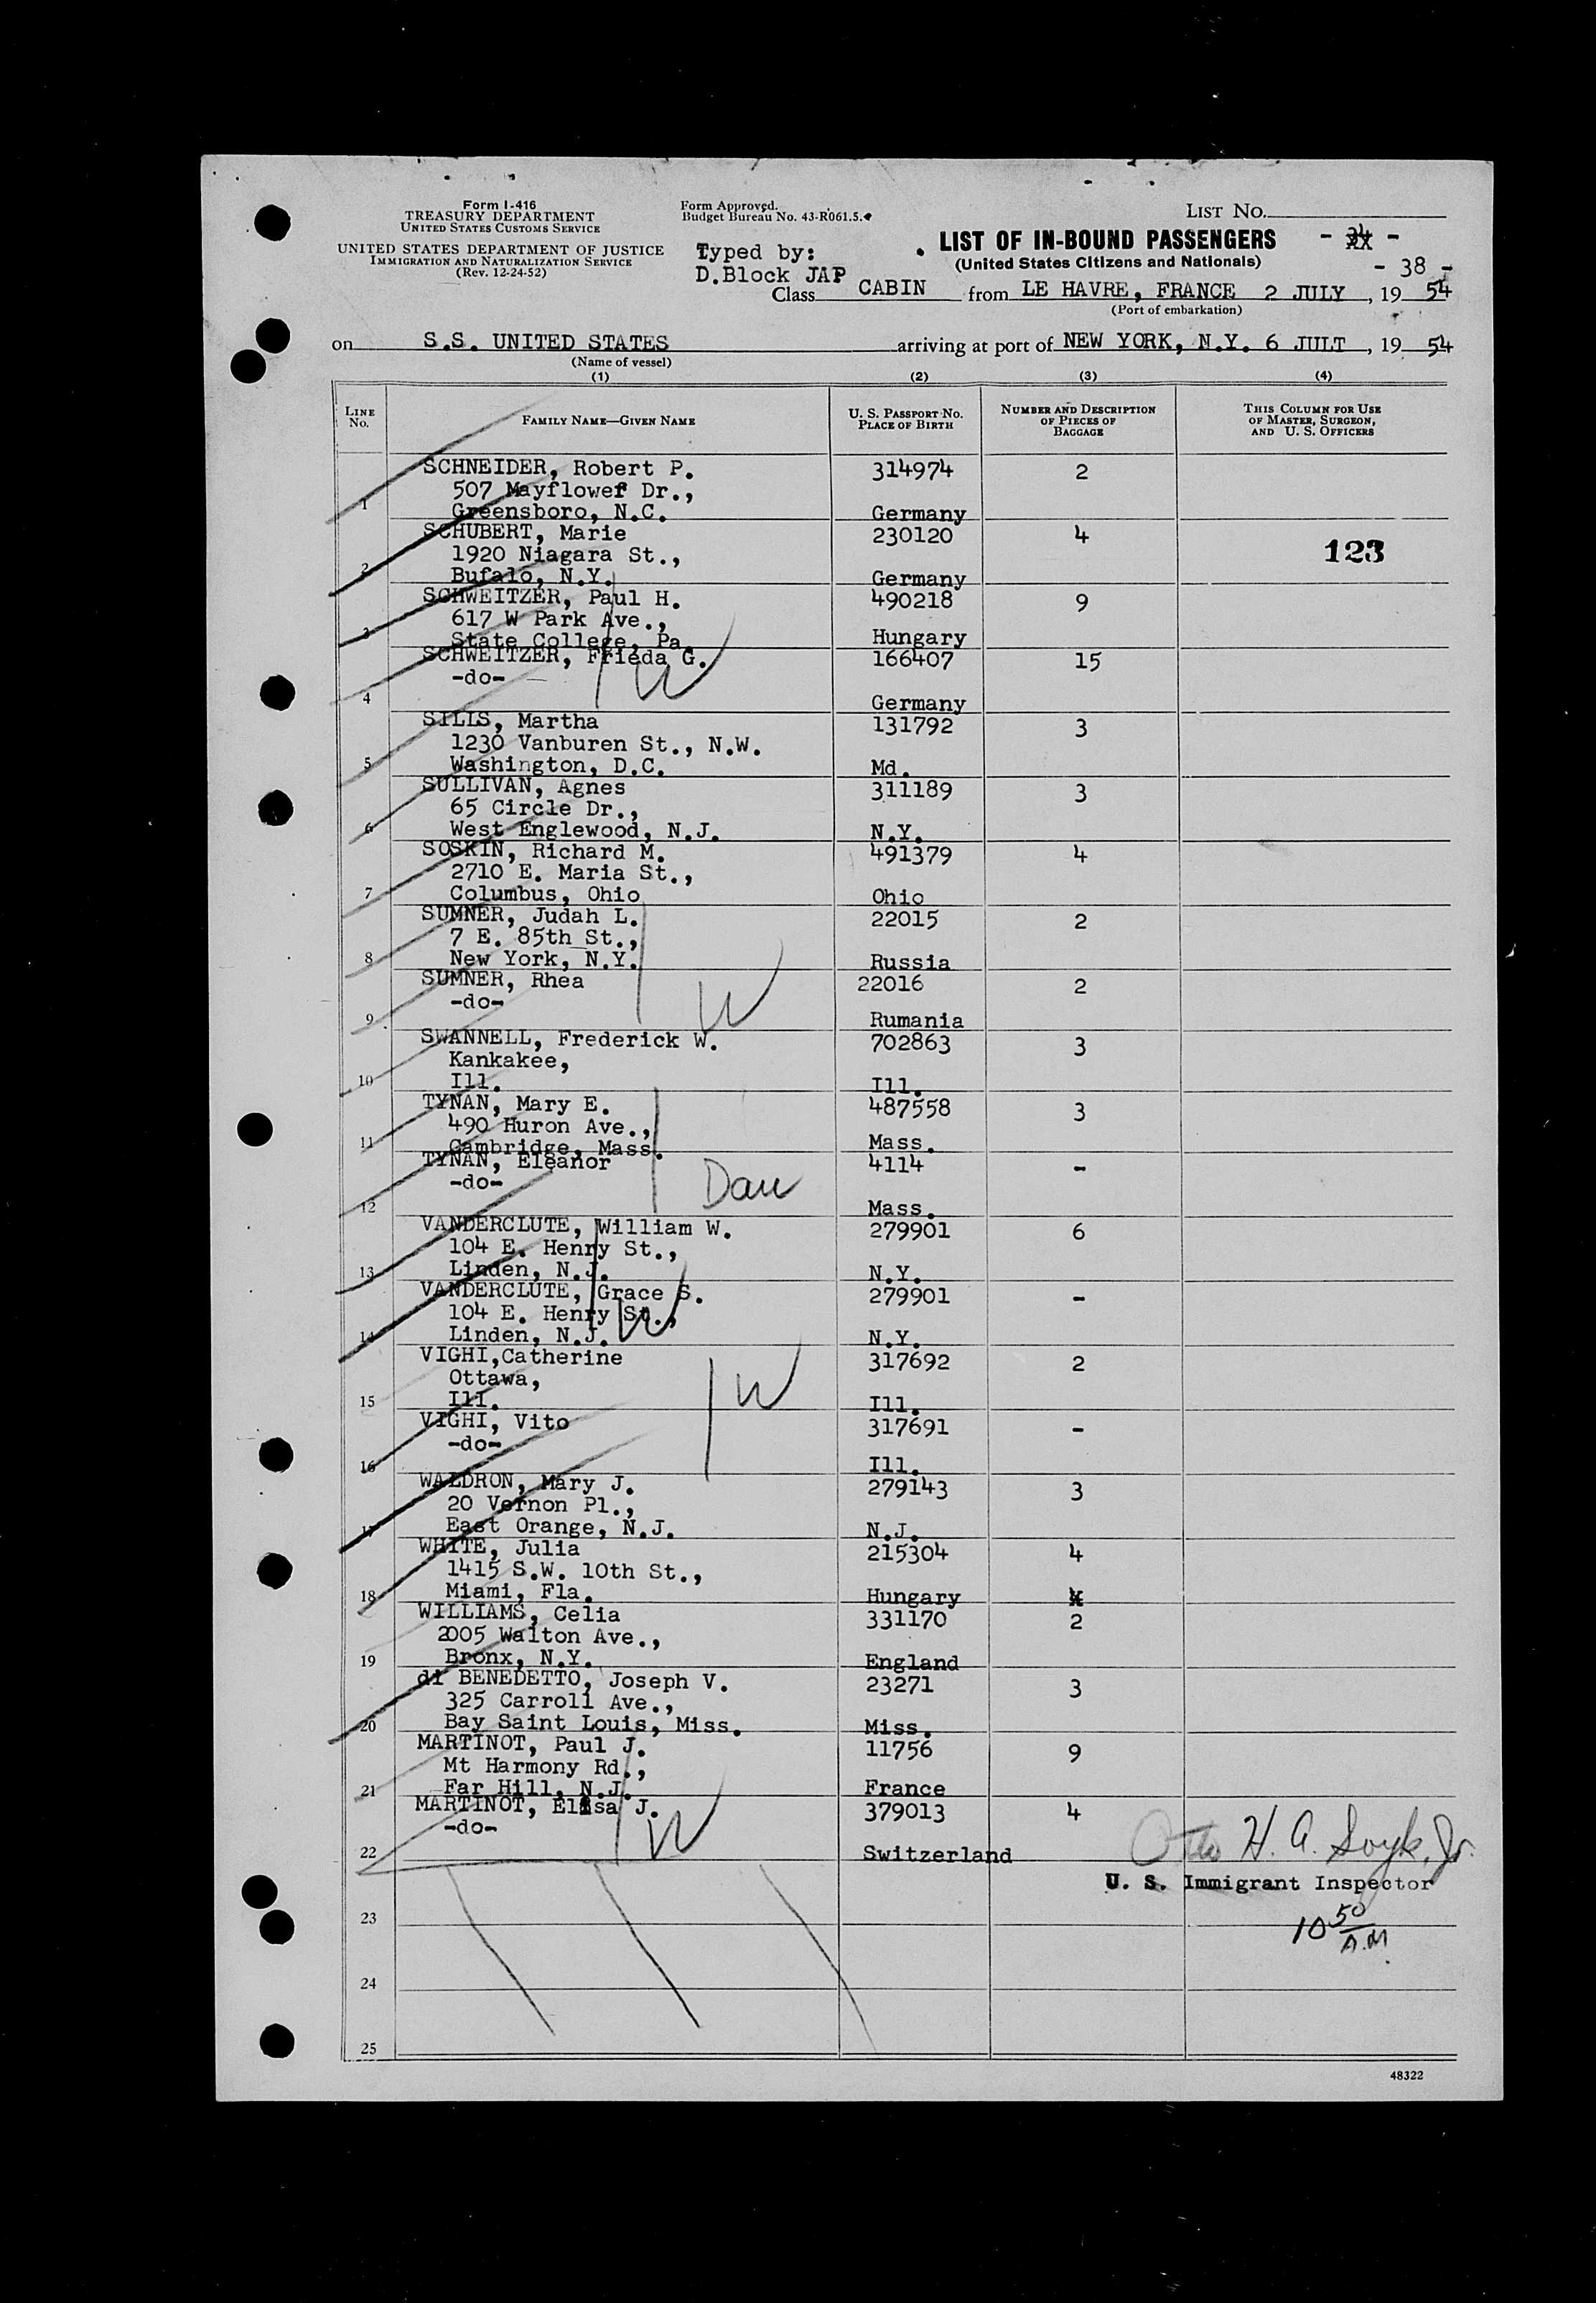 Form I-416
TREASURY DEPARTMENT
UNITED STATES CUSTOMS SERVICE
UNITED STATES DEPARTMENT OF JUSTICE
IMMIGRATION AND NATURALIZATION SERVICE
(Rev. 12-24-52)
Form Approved.
Budget Bureau No. 43-R061.5.
Typed by:
D.Block JAP
LIST NO.
LIST OF IN-BOUND PASSENGERS
(United States Citizens and Nationals)
- 38 -
Class CABIN from LE HAVRE, FRANCE 2 JULY, 19 54
(Port of embarkation)
on S.S. UNITED STATES arriving at port of NEW YORK, N.Y. 6 JULT, 19 54
(Name of vessel)
(1) (2) (3) (4)
LINE NO. FAMILY NAME—GIVEN NAME U. S. PASSPORT NO. PLACE OF BIRTH NUMBER AND DESCRIPTION OF PIECES OF BAGGAGE THIS COLUMN FOR USE OF MASTER, SURGEON, AND U. S. OFFICERS
SCHNEIDER, Robert P. 314974 2
507 Mayflower Dr.,
1 Greensboro, N.C. Germany
SCHUBERT, Marie 230120 4
1920 Niagara St., 123
2 Bufalo, N.Y. Germany
SCHWEITZER, Paul H. 490218 9
617 W Park Ave.,
3 State College, Pa. Hungary
SCHWEITZER, Frieda G. 166407 15
-do- W
4 Germany
SILLS, Martha 131792 3
1230 Vanburen St., N.W.
5 Washington, D.C. Md.
SULLIVAN, Agnes 311189 3
65 Circle Dr.,
6 West Englewood, N.J. N.Y.
SOSKIN, Richard M. 491379 4
2710 E. Maria St.,
7 Columbus, Ohio Ohio
SUMNER, Judah L. 22015 2
7 E. 85th St.,
8 New York, N.Y. Russia
SUMNER, Rhea 22016 2
-do- W
9 Rumania
SWANNELL, Frederick W. 702863 3
Kankakee,
10 Ill. Ill.
TYNAN, Mary E. 487558 3
490 Huron Ave.,
11 Cambridge, Mass. Mass.
TYNAN, Eleanor 4114 -
-do- Dau
12 Mass.
VANDERCLUTE, William W. 279901 6
104 E. Henry St.,
13 Linden, N.J. N.Y.
VANDERCLUTE, Grace S. 279901 -
104 E. Henry St., W
14 Linden, N.J. N.Y.
VIGHI,Catherine 317692 2
Ottawa, W
15 Ill. Ill.
VIGHI, Vito 317691 -
-do-
16 Ill.
WALDRON, Mary J. 279143 3
20 Vernon Pl.,
17 East Orange, N.J. N.J.
WHITE, Julia 215304 4
1415 S.W. 10th St.,
18 Miami, Fla. Hungary
WILLIAMS, Celia 331170 2
2005 Walton Ave.,
19 Bronx, N.Y. England
di BENEDETTO, Joseph V. 23271 3
325 Carroll Ave.,
20 Bay Saint Louis, Miss. Miss.
MARTINOT, Paul J. 11756 9
Mt Harmony Rd.,
21 Far Hill, N.J. France
MARTINOT, Elisa J. 379013 4
-do- W H. A. Soyk, Jr.
22 Switzerland
U. S. Immigrant Inspector
23
10 50 A.M.
24
25
48322